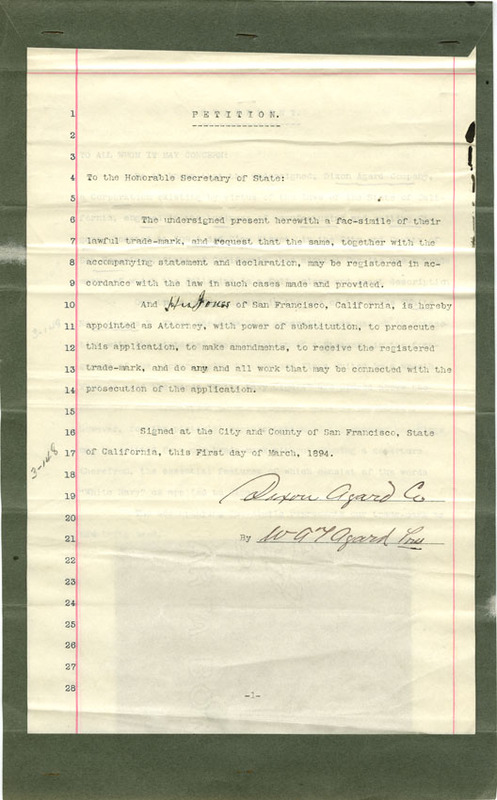 1 PETITION.
2
3 TO ALL WHOM IT MAY CONCERN:
4 To the Honorable Secretary of State:
5
6 The undersigned present herewith a fac-simile of their
7 lawful trade-mark, and request that the same, together with the
8 accompanying statement and declaration, may be registered in ac-
9 cordance with the law in such cases made and provided.
10 And Jones of San Francisco, California, is hereby
11 appointed as Attorney, with power of substitution, to prosecute
12 this application, to make amendments, to receive the registered
13 trade-mark, and do any and all work that may be connected with the
14 prosecution of the application.
15
16 Signed at the City and County of San Francisco, State
17 of California, this First day of March, 1894.
3-148
18
19 Dixon Agard Co
20
21 By W A T Agard Pres
22
23
24
25
26
27
28
-1-